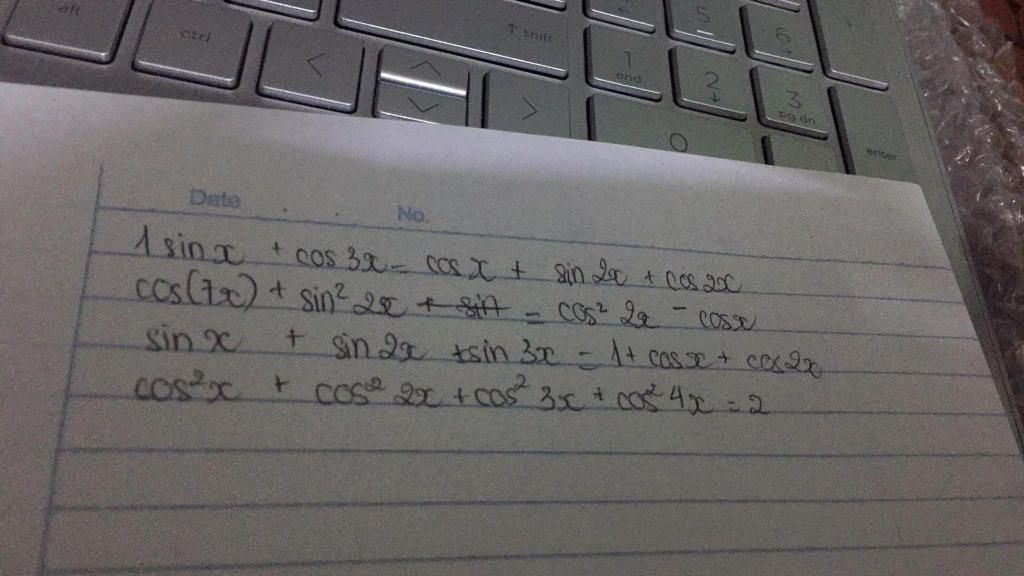 alt
ctrl
<
↑ shift
>
5
6
1
end
2
↓
3
pg dn
0
enter
Date . . No.
1 sin x + cos 3x = cos x + sin 2x + cos 2x
cos(7x) + sin² 2x + sin = cos² 2x - cosx
sin x + sin 2x + sin 3x = 1 + cos x + cos 2x
cos²x + cos² 2x + cos² 3x + cos² 4x = 2